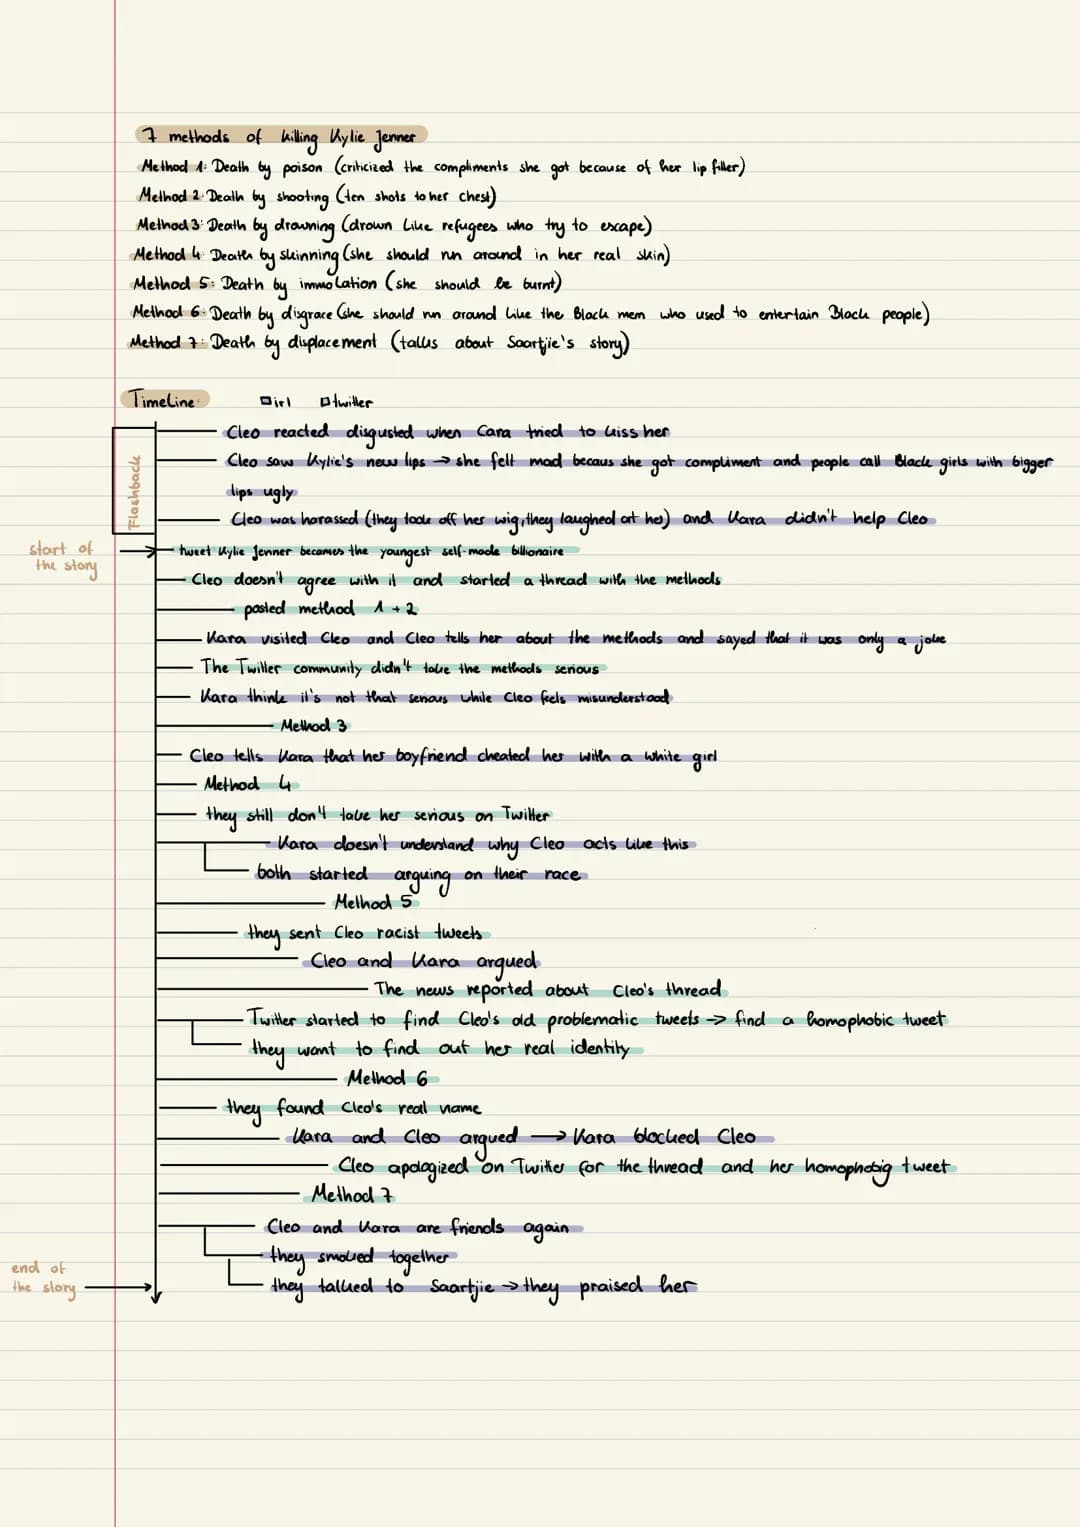 7 methods of killing Kylie Jenner
Method 1: Death by poison (criticized the compliments she got because of her lip filler)
Method 2: Death by shooting (ten shots to her chest)
Method 3: Death by drowning (drown like refugees who try to escape)
Method 4: Death by skinning (she should run around in her real skin)
Method 5: Death by immolation (she should be burnt)
Method 6: Death by disgrace (she should run around like the Black men who used to entertain Black people)
Method 7: Death by displacement (talks about Saartjie's story)
Timeline: irl twitter
Flashback
Cleo reacted disgusted when Cara tried to kiss her
Cleo saw Kylie's new lips → she felt mad becaus she got compliment and people call Black girls with bigger
lips ugly
Cleo was harassed (they took off her wig, they laughed at her) and Kara didn't help Cleo
start of
the story
tweet Kylie Jenner becomes the youngest self-made billionaire
Cleo doesn't agree with it and started a thread with the methods
posted method 1 + 2
Kara visited Cleo and Cleo tells her about the methods and sayed that it was only a joke
The Twitter community didn't take the methods serious
Kara think it's not that serious while Cleo feels misunderstood
Method 3
Cleo tells Kara that her boyfriend cheated her with a white girl
Method 4
they still don't take her serious on Twitter
Kara doesn't understand why Cleo acts like this
both started arguing on their race
Method 5
they sent Cleo racist tweets
Cleo and Kara argued
The news reported about Cleo's thread
Twitter started to find Cleo's old problematic tweets → find a homophobic tweet
they want to find out her real identity
Method 6
they found Cleo's real name
Kara and Cleo argued → Kara blocked Cleo
Cleo apologized on Twitter for the thread and her homophobig tweet
Method 7
Cleo and Kara are friends again
they smoked together
end of
the story
they talked to Saartjie → they praised her